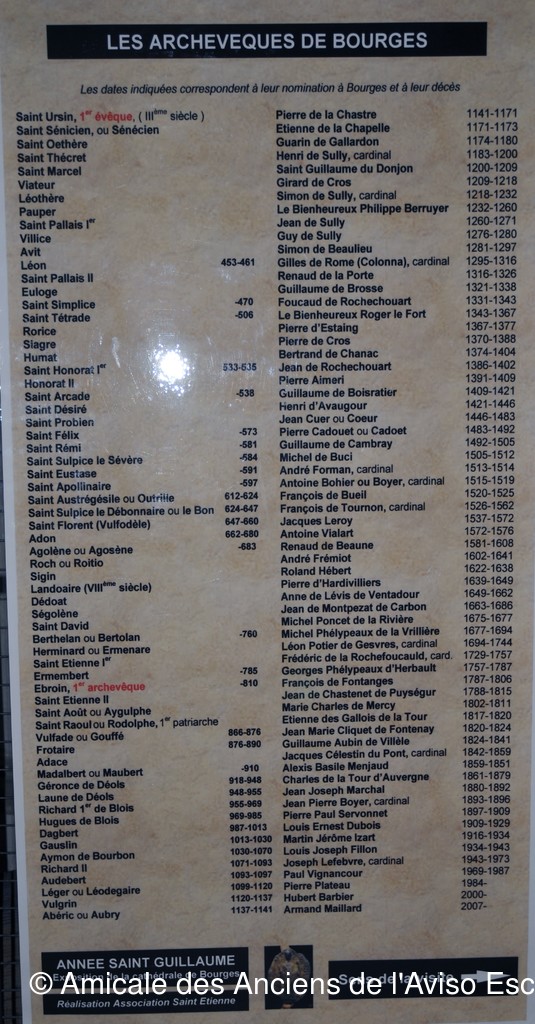 LES ARCHEVEQUES DE BOURGES
Les dates indiquées correspondent à leur nomination à Bourges et à leur décès
Saint Ursin, 1er évêque, ( IIIème siècle )
Saint Sénicien, ou Sénécien
Saint Oethère
Saint Thécret
Saint Marcel
Viateur
Léothère
Pauper
Saint Pallais Ier
Villice
Avit
Léon 453-461
Saint Pallais II
Euloge
Saint Simplice -470
Saint Tétrade -506
Rorice
Siagre
Humat
Saint Honorat Ier 533-535
Honorat II
Saint Arcade -538
Saint Désiré
Saint Probien
Saint Félix -573
Saint Rémi -581
Saint Sulpice le Sévère -584
Saint Eustase -591
Saint Apollinaire -597
Saint Austrégésile ou Outrille 612-624
Saint Sulpice le Débonnaire ou le Bon 624-647
Saint Florent (Vulfodèle) 647-660
Adon 662-680
Agolène ou Agosène -683
Roch ou Roitio
Sigin
Landoaire (VIIIème siècle)
Dédoat
Ségolène
Saint David
Berthelan ou Bertolan -760
Herminard ou Ermenare
Saint Etienne Ier
Ermembert -785
Ebroin, 1er archevêque -810
Saint Etienne II
Saint Août ou Aygulphe
Saint Raoul ou Rodolphe, 1er patriarche
Vulfade ou Gouffé 866-876
Frotaire 876-890
Adace
Madalbert ou Maubert -910
Géronce de Déols 918-948
Laune de Déols 948-955
Richard 1er de Blois 955-969
Hugues de Blois 969-985
Dagbert 987-1013
Gauslin 1013-1030
Aymon de Bourbon 1030-1070
Richard II 1071-1093
Audebert 1093-1097
Léger ou Léodegaire 1099-1120
Vulgrin 1120-1137
Abéric ou Aubry 1137-1141
Pierre de la Chastre 1141-1171
Etienne de la Chapelle 1171-1173
Guarin de Gallardon 1174-1180
Henri de Sully, cardinal 1183-1200
Saint Guillaume du Donjon 1200-1209
Girard de Cros 1209-1218
Simon de Sully, cardinal 1218-1232
Le Bienheureux Philippe Berruyer 1232-1260
Jean de Sully 1260-1271
Guy de Sully 1276-1280
Simon de Beaulieu 1281-1297
Gilles de Rome (Colonna), cardinal 1295-1316
Renaud de la Porte 1316-1326
Guillaume de Brosse 1321-1338
Foucaud de Rochechouart 1331-1343
Le Bienheureux Roger le Fort 1343-1367
Pierre d'Estaing 1367-1377
Pierre de Cros 1370-1388
Bertrand de Chanac 1374-1404
Jean de Rochechouart 1386-1402
Pierre Aimeri 1391-1409
Guillaume de Boisratier 1409-1421
Henri d'Avaugour 1421-1446
Jean Cuer ou Coeur 1446-1483
Pierre Cadouet ou Cadoet 1483-1492
Guillaume de Cambray 1492-1505
Michel de Buci 1505-1512
André Forman, cardinal 1513-1514
Antoine Bohier ou Boyer, cardinal 1515-1519
François de Bueil 1520-1525
François de Tournon, cardinal 1526-1562
Jacques Leroy 1537-1572
Antoine Vialart 1572-1576
Renaud de Beaune 1581-1608
André Frémiot 1602-1641
Roland Hébert 1622-1638
Pierre d'Hardivilliers 1639-1649
Anne de Lévis de Ventadour 1649-1662
Jean de Montpezat de Carbon 1663-1686
Michel Poncet de la Rivière 1675-1677
Michel Phélypeaux de la Vrillière 1677-1694
Léon Potier de Gesvres, cardinal 1694-1744
Frédéric de la Rochefoucauld, card. 1729-1757
Georges Phélypeaux d'Herbault 1757-1787
François de Fontanges 1787-1806
Jean de Chastenet de Puységur 1788-1815
Marie Charles de Mercy 1802-1811
Etienne des Gallois de la Tour 1817-1820
Jean Marie Cliquet de Fontenay 1820-1824
Guillaume Aubin de Villèle 1824-1841
Jacques Célestin du Pont, cardinal 1842-1859
Alexis Basile Menjaud 1859-1851
Charles de la Tour d'Auvergne 1861-1879
Jean Joseph Marchal 1880-1892
Jean Pierre Boyer, cardinal 1893-1896
Pierre Paul Servonnet 1897-1909
Louis Ernest Dubois 1909-1929
Martin Jérôme Izart 1916-1934
Louis Joseph Fillon 1934-1943
Joseph Lefebvre, cardinal 1943-1973
Paul Vignancour 1969-1987
Pierre Plateau 1984-
Hubert Barbier 2000-
Armand Maillard 2007-
ANNEE SAINT GUILLAUME
Exposition de la cathédrale de Bourges
Réalisation Association Saint Etienne
Sens de la visite
© Amicale des Anciens de l'Aviso Esc